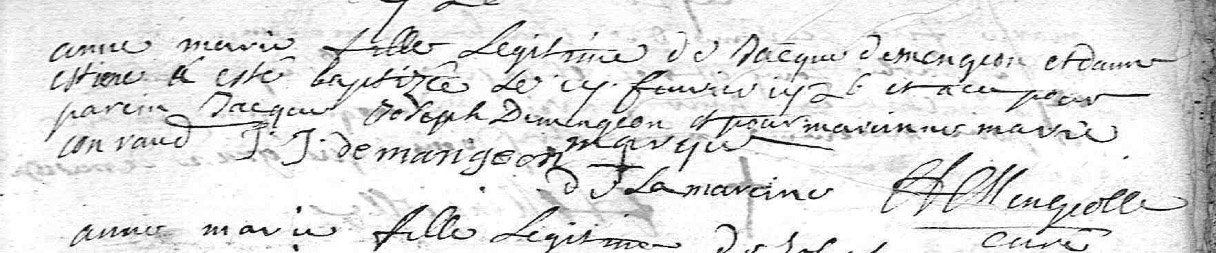 anne marie fille Legitime de Jacque demengeon et danne
estiene a esté baptizée Le fevrier et a eu pour
parein Jacque Joseph Demengeon et pour mareinne marie
conraud J J demangeon marque
de La mareine Mengeolle
curé
anne marie fille Legitime de